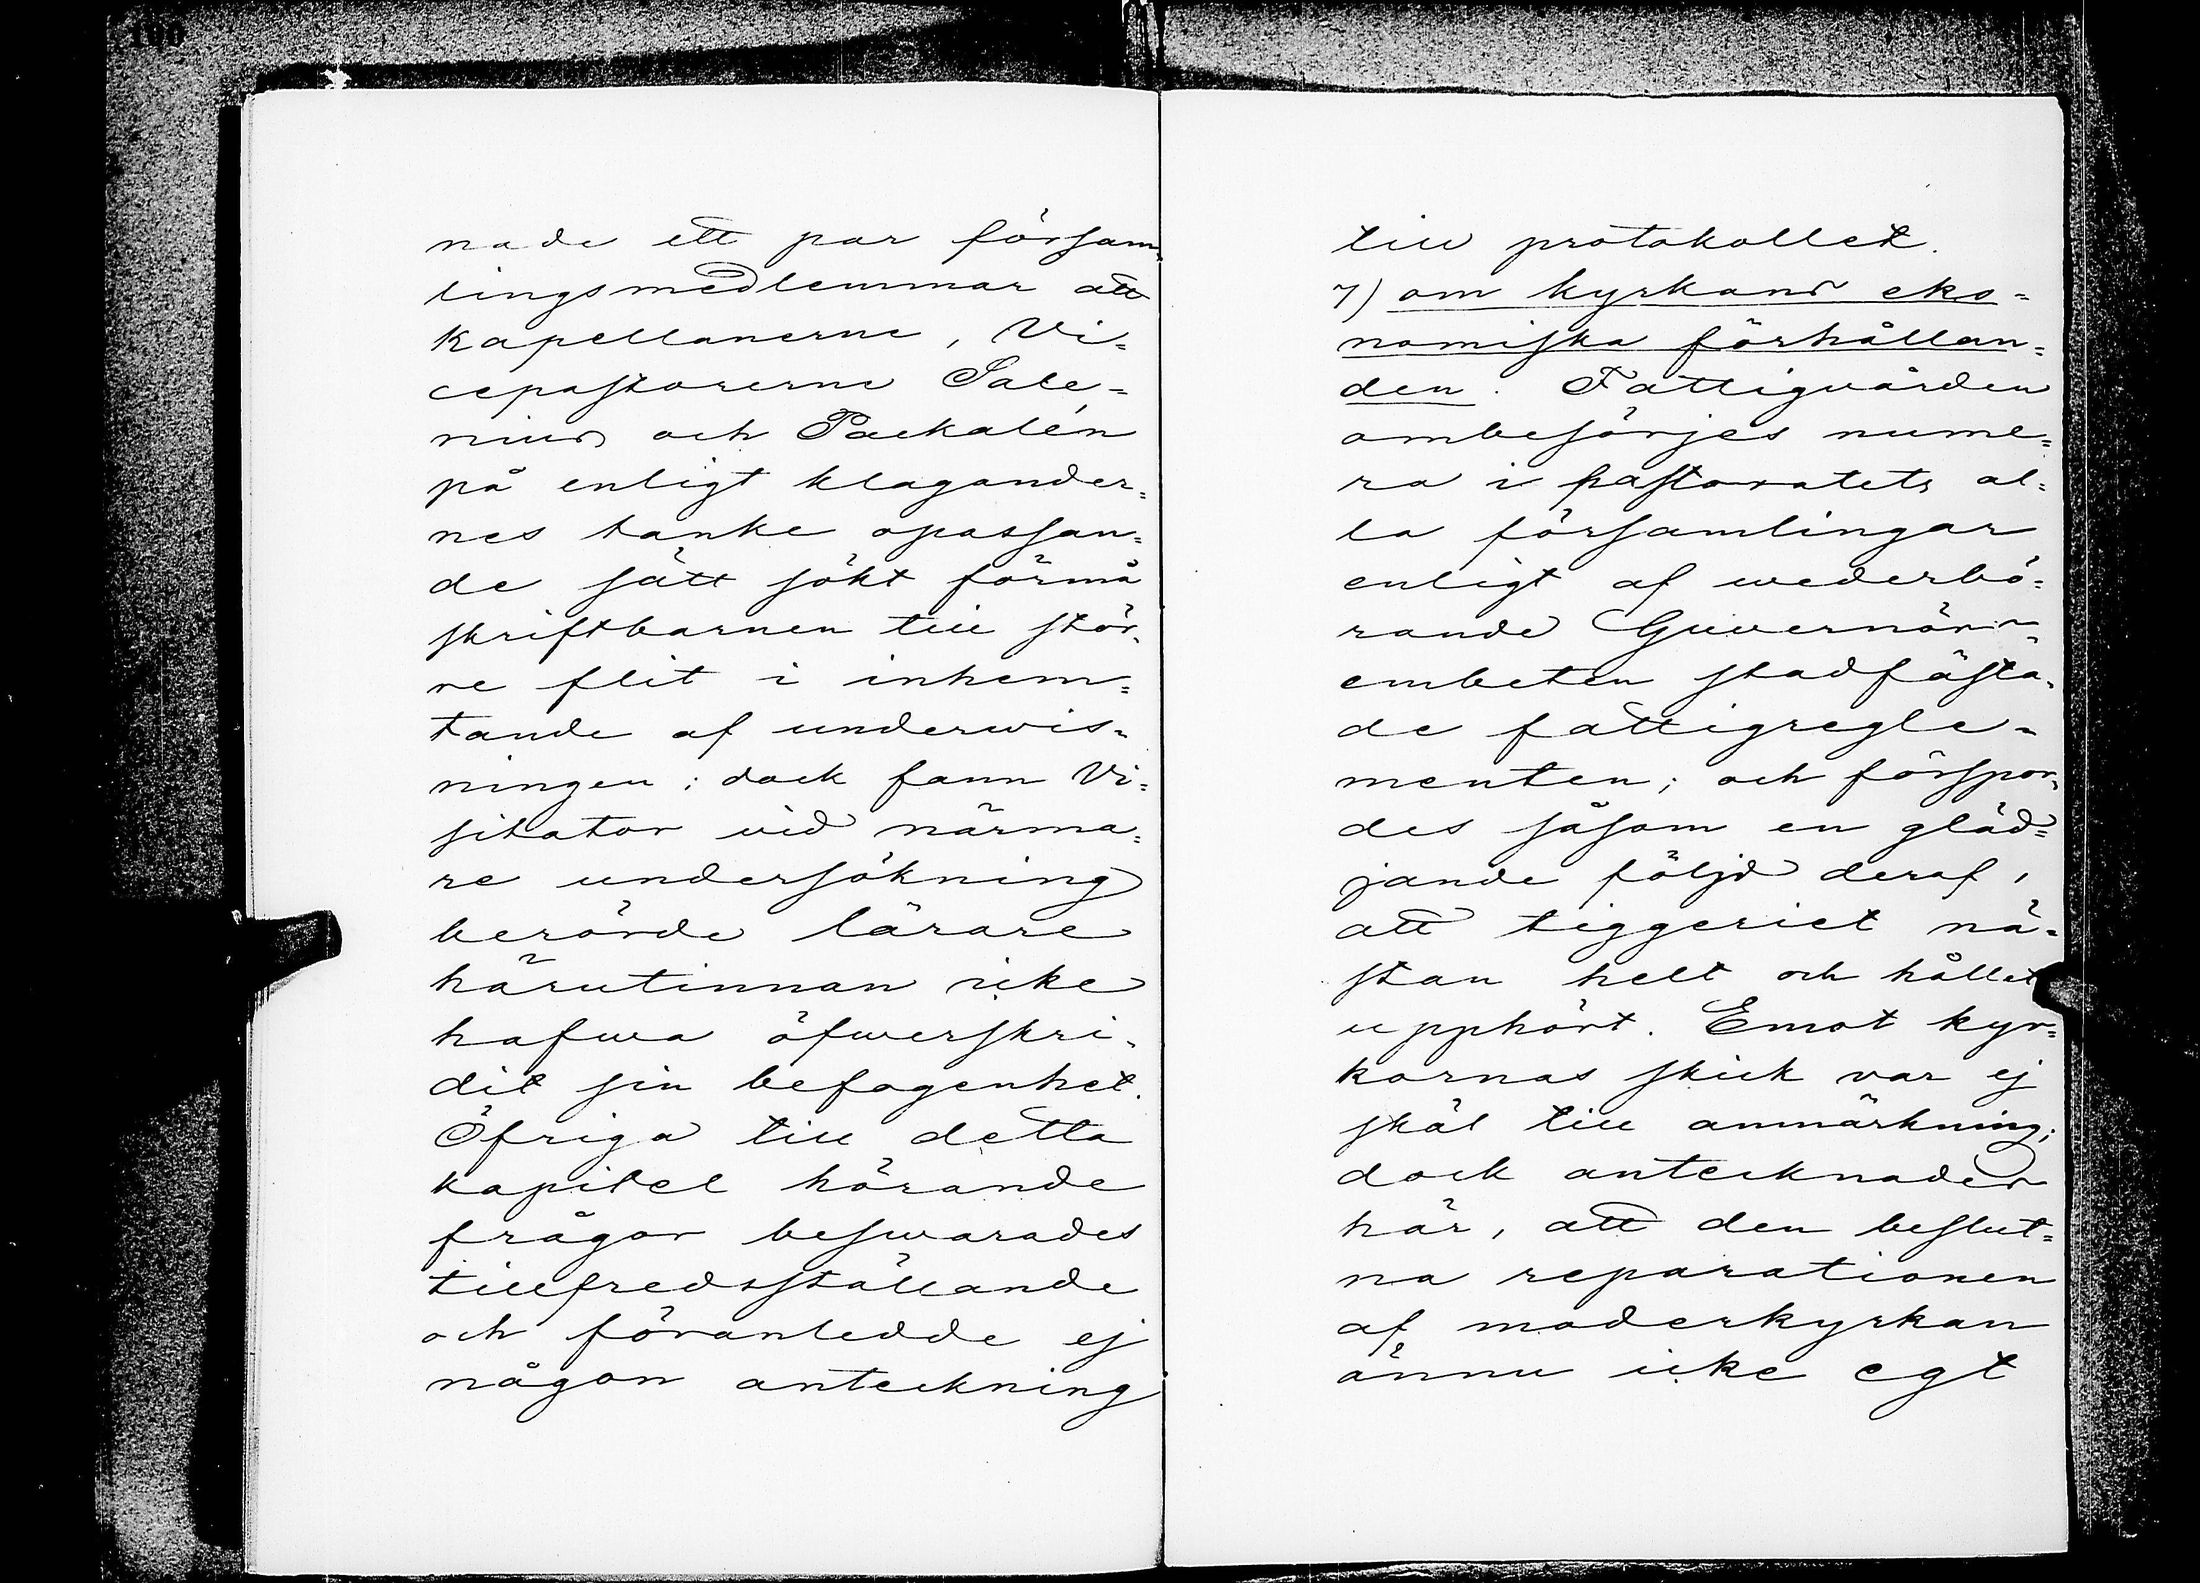 nade ett par försam
lingsmedlemmar att
kapellanerne, Vi=
cepastorerne Sale=
nius och Packalén
på enligt klagander=
nes tanke opassan=
de sätt sökt förmå
skriftbarnen till stör=
re flit i inhem=
tande af underwis=
ningen; dock fann Vi=
sitator vid närma=
re undersökning
berörde lärare
härutinnan icke
hafwa öfwerskri=
dit sin befogenhet.
Öfriga till detta
kapitel hörande
frågor beswarades
tillfredsställande
och föranledde ej
någon anteckning
till protokollet.
7) om kyrkans eko=
nomiska förhållan=
den. Fattigvården
ombesörjes nume=
ra i pastoratets al=
la församlingar
enligt af wederbö=
rande Guvernörs=
embeten stadfästa=
de fattigregle=
menten; och förspor=
des såsom en gläd=
jande följd deraf,
att tiggeriet nä=
stan helt och hållet
upphört. Emot kyr=
kornas skick var ej
skäl till anmärkning;
dock antecknades
här, att den beslut=
na reparationen
af moderkyrkan
ännu icke egt